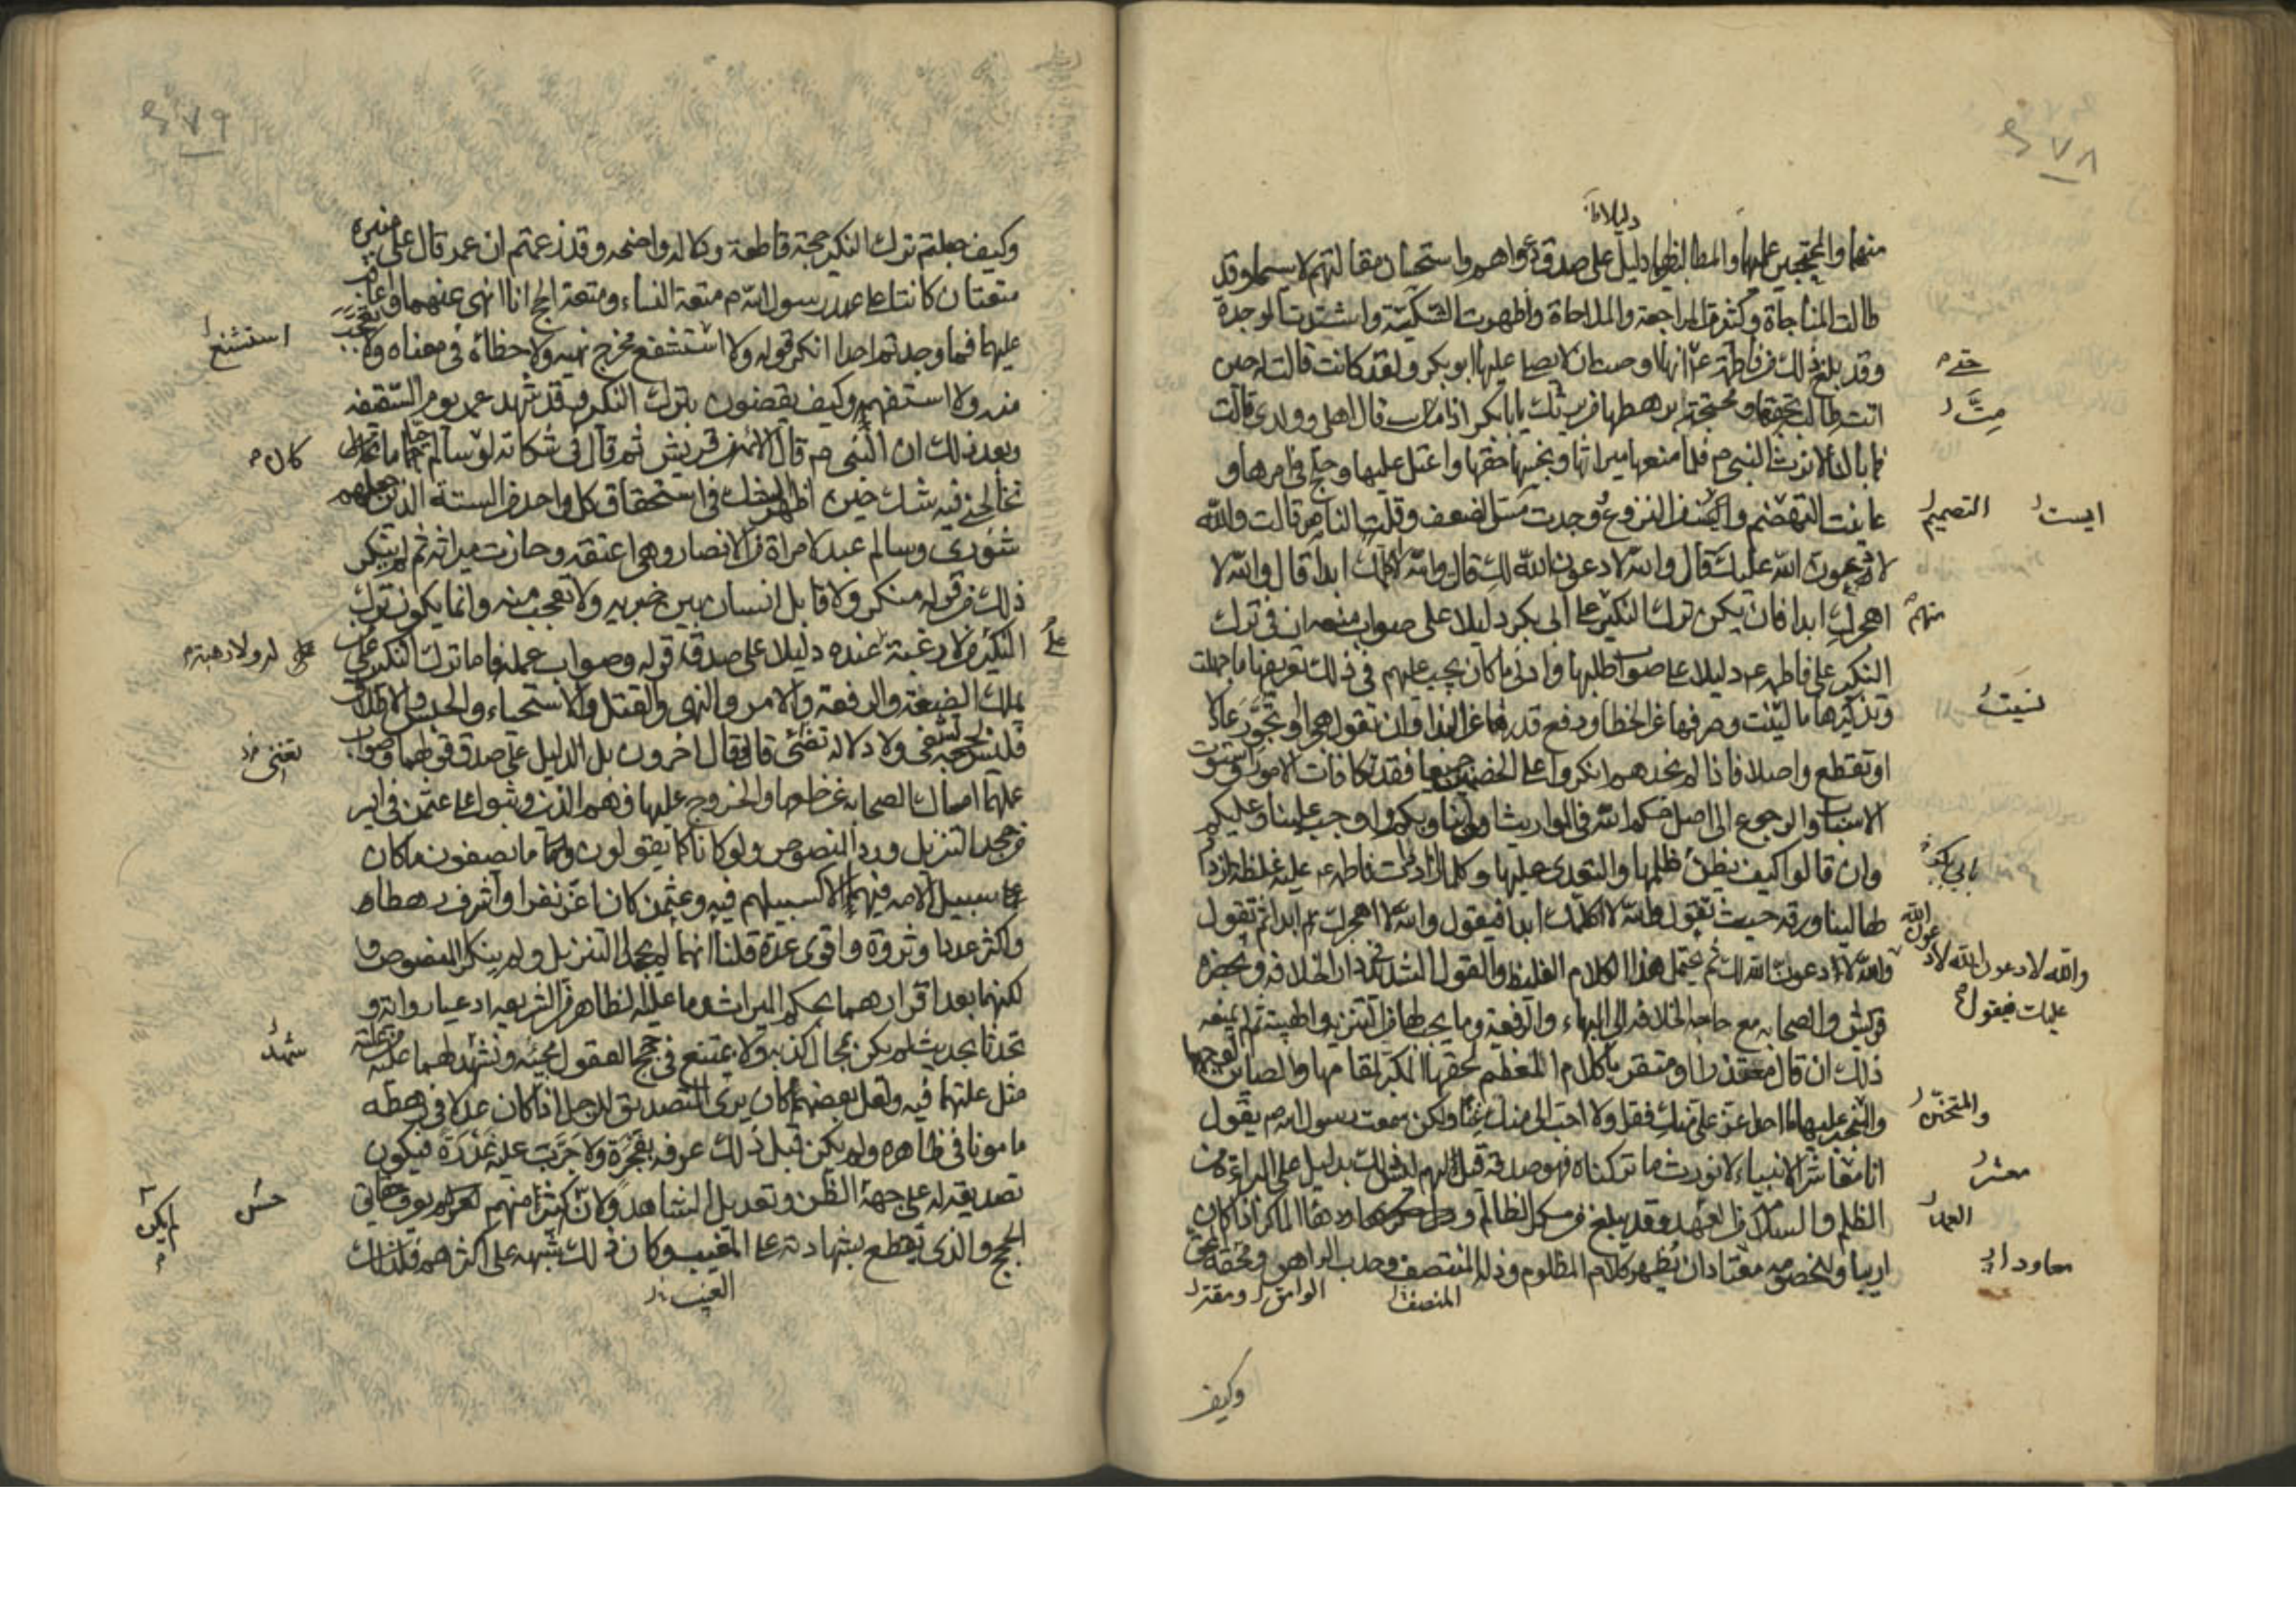 ٤٧٨
دليلا ظ
منهما والمحتجين عليهما والمطالبين لهما دليل على صدق دعواهم واستحسان مقالتهم لا سيما وقد
طالت المناجاة وكثرت المراجعة والملاحاة وظهرت الشكية واشتدت الموجدة
وقد بلغ ذلك من فاطمة ع انها اوصت ان لا يصلي عليها ابو بكر ولقد كانت قالت له حين
حتى
اتته طالبة بحقها ومحتجة برهطها من يرثك يا با بكر اذا مت قال اهلي وولدي قالت
مِتَّ
فما بالنا لا نرث النبي م فلما منعها ميراثها وبخسها حقها واعتل عليها وجلح في امرها و
عاينت التهضم و من النزوع ووجدت مس الضعف وقلة الناصر قالت والله
التصميم
ايست
لادعون الله عليك قال والله لادعون الله لك قالت والله لا اكلمك ابدا قال والله لا
اهجرك ابدا فان يكن ترك النكير على ابي بكر دليلا على صواب منعه ان في ترك
منهم
النكير على فاطمه ع دليلا على صواب طلبها وادنى ما كان يجب عليهم في ذلك تعريفها ما جهلت
وتذكيرها ما نسيت وصرفها عن الخطا ورفع قدرها عن البذا وان تقول هجرا وتجور عادلا
نسيت
او تقطع واصلا فاذا لم نجدهم انكروا على الخصمين جميعا فقد تكافات الامور واستوت
الاسباب والرجوع الى اصل حكم الله في المواريث اولى بنا وبكم واوجب علينا وعليكم
وان قالوا كيف يظن ظلمها والتعدي عليها وكلما ازدادت فاطمه ع عليه غلظة ازداد
بابي بكر
لها لينا ورقه حيث تقول والله لا اكلمك ابدا فيقول والله لا اهجرك ابدا ثم تقول
والله لادعون الله لك ثم يحتمل هذا الكلام الغليظ والقول الشديد في دار الخلافه وبحضرة
والله لادعون الله
عليك فيقول
قريش والصحابه مع حاجه الخلافه الى البهاء والرفعة وما يجب لها من التنزيه والهيبة ثم لم يمنعه
ذلك ان قال معتذرا او متقربا كلام المعظم لحقها المكبر لمقامها والصاين لوجهها
والمتحنن عليها ما احد اعز علي منك فقرا ولا احب الي منك غنا ولكن سمعت رسول الله م يقول
والمتحنن
انا معاشر الانبياء لا نورث ما تركناه فهو صدقة قيل لهم ليس ذلك بدليل على البراءة من
معشر
الظلم والسلامة من العمد وقد يبلغ من مكر الظالم ودهاء الماكر اذا كان
العمد
اريبا وللخصومة معتادا ان يظهر كلام المظلوم وذلة المنتصف وحدب الوامق ومقة المحق
معاودا
المنصف
الوامق ومقة
وكيف
٤٧٩
وكيف جعلتم ترك النكير حجة قاطعة ودلالة واضحه وقد زعمتم ان عمر قال على منبره
متعتان كانتا على عهد رسول الله م متعة النساء ومتعة الحج انا انهى عنهما واعاقب
عليهما فما وجدتم احدا انكر قوله ولا استشنع مخرج نهيه ولا خطأه في معناه ولا تعجب
استشنع
منه ولا استفهمه وكيف يقضون بترك النكير وقد شهد عمر يوم السقيفه
وبعد ذلك ان النبي م قال الائمه من قريش ثم قال في شكاته لو كان سالم حيا ما
كان
تخالجني فيه شك حين اظهر الشك في استحقاق كل واحد من الستة الذين جعلهم
شورى وسالم عبد لامراة من الانصار وهي اعتقته وحازت ميراثه ثم لم ينكر
ذلك من قوله منكر ولا قابل انسان بين خبريه ولا تعجب منه وانما يكون ترك
النكير على من لا رغبة عنده دليلا على صدق قوله وصواب عمله فاما ترك النكير على من
له ولا رهبة
يملك الضيعة والرفعة والامر والنهي والقتل والاستحياء والحبس والاطلاق
فليس بحجه تشفي ولا دلاله تضئ قال وقال اخرون بل الدليل على صدق قولهما وصواب
عملهما امساك الصحابه عن خلعهما والخروج عليهما وهم الذين وثبوا على عثمن في ايسر
من جحد التنزيل ورد النصوص ولو كانا كما يقولون وما يصفون ما كان
سبيل الامه فيهما الا كسبيلهم فيه وعثمن كان اعز نفرا واشرف رهطا
واكثر عددا وثروة واقوى عدة قلنا انهما لم يجحدا التنزيل ولم ينكرا النصوص و
لكنهما بعد اقرارهما بحكم الميراث وما عليه الظاهر من الشريعه ادعيا رواية و
تحدثا بحديث لم يكن محالا كذبه ولا يمتنع في حجج العقول مجيئه وشهد لهما عليه من علته
شهد
مثل علتهما فيه ولعل بعضهم كان يرى التصديق للرجل اذا كان عدلا في رهطه
مامونا في ظاهره ولم يكن قبل ذلك عرفه بفجرة ولا جربت عليه غدرة فيكون
تصديقه له على جهة الظن وتعديل الشاهد ولان كثيرا منهم لم يكن يعرف حقائق
حسن
لم يكن
الحجج والذي يقطع بشهادته على المغيب وكان ذلك شبهه على اكثرهم فلذلك
الغيب